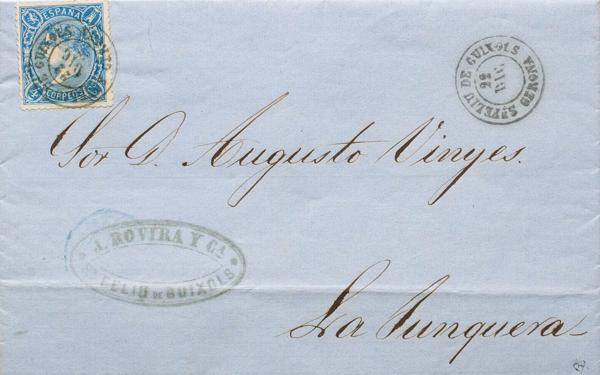 ESPAÑA
CORREOS
S. FELIU DE GUIXOLS GERONA
22
DIC.
Sor D. Augusto Vinyes.
J. ROVIRA Y Cª
Sn FELIU DE GUIXOLS
La Junquera